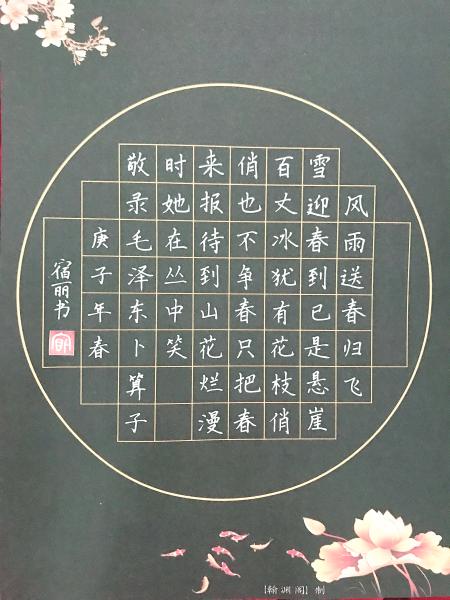 风雨送春归飞
雪迎春到已是悬崖
百丈冰犹有花枝俏
俏也不争春只把春
来报待到山花烂漫
时她在丛中笑
敬录毛泽东卜算子
庚子年春
宿丽书
【翰渊阁】制